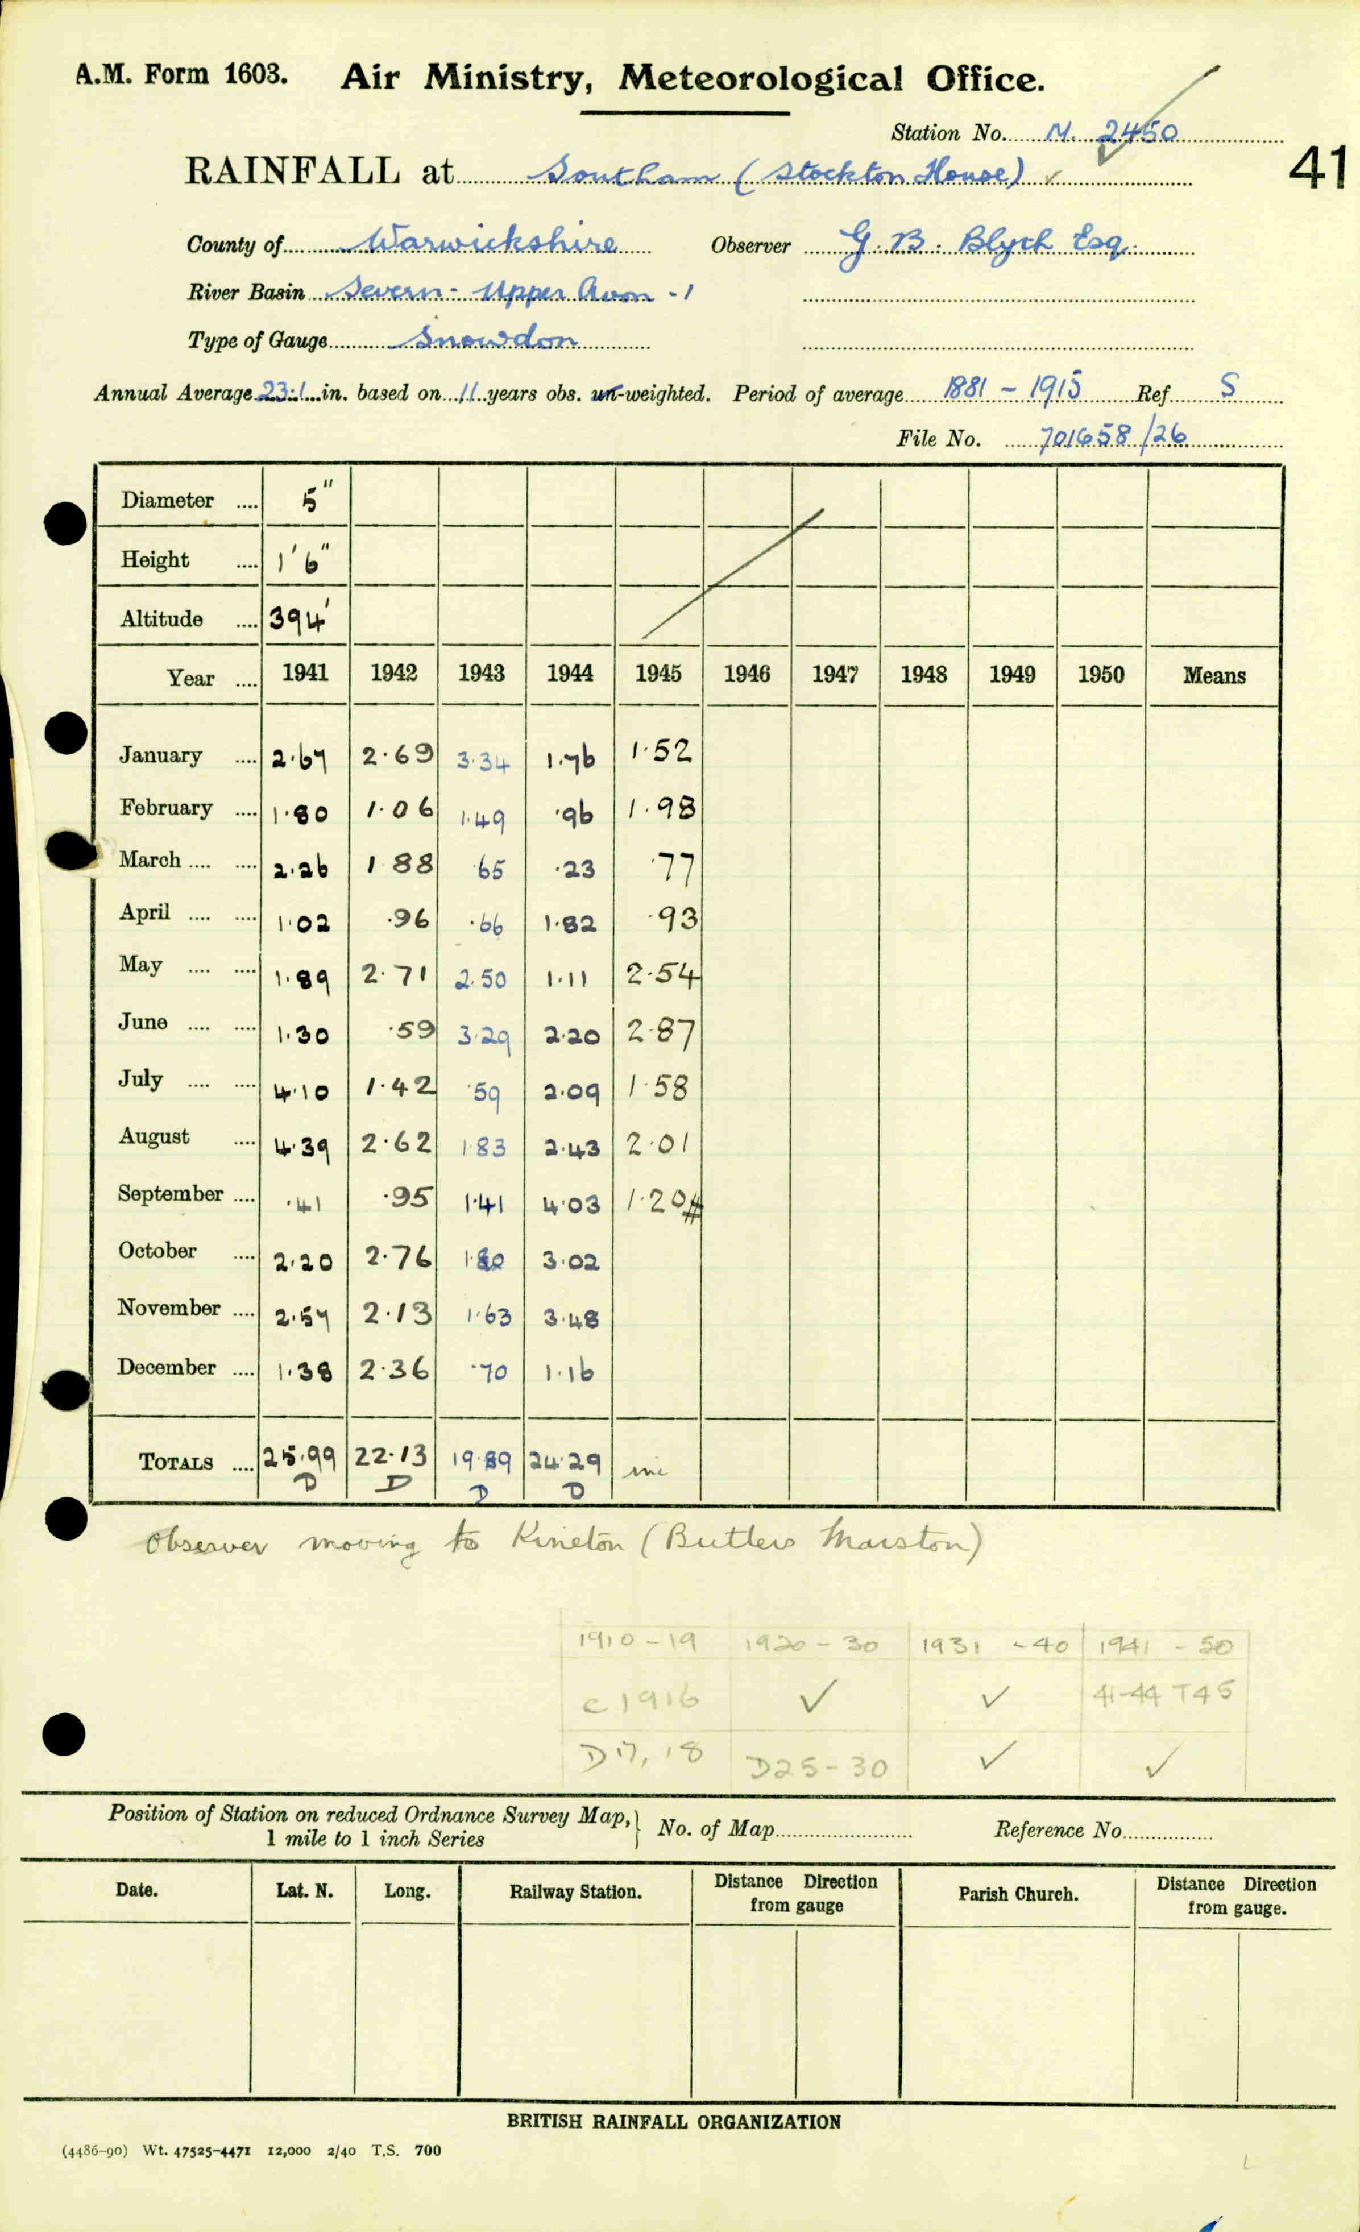 A.M. Form 1603. Air Ministry, Meteorological Office.
Station No. M. 2450
41
RAINFALL at Southam (Stockton House) ✓
County of Warwickshire Observer G. B. Blyth Esq.
River Basin Severn - Upper Avon - 1
Type of Gauge Snowdon
Annual Average 23.1 in. based on 11 years obs. un-weighted. Period of average 1881 - 1915 Ref S
File No. 701658/26
Diameter .... 5"
Height .... 1'6"
Altitude .... 394'
Year .... 1941 1942 1943 1944 1945 1946 1947 1948 1949 1950 Means
January .... 2.67 2.69 3.34 1.76 1.52
February .... 1.80 1.06 1.49 .96 1.98
March .... .... 2.26 1 88 .65 .23 .77
April .... .... 1.02 .96 .66 1.82 .93
May .... .... 1.89 2.71 2.50 1.11 2.54
June .... .... 1.30 .59 3.29 2.20 2.87
July .... .... 4.10 1.42 .59 2.09 1.58
August .... 4.39 2.62 1.83 2.43 2.01
September .... .41 .95 1.41 4.03 1.20#
October .... 2.20 2.76 1.80 3.02
November .... 2.57 2.13 1.63 3.48
December .... 1.38 2.36 .70 1.16
TOTALS .... 25.99 22.13 19.89 24.29 inc
D D D D
Observer moving to Kineton (Butlers Marston)
1910 - 19 1920 - 30 1931 - 40 1941 - 50
c 1916 ✓ ✓ 41-44 T45
D 17, 18 D25 - 30 ✓ ✓
Position of Station on reduced Ordnance Survey Map,
1 mile to 1 inch Series } No. of Map Reference No.
Date. Lat. N. Long. Railway Station. Distance Direction from gauge Parish Church. Distance Direction from gauge.
BRITISH RAINFALL ORGANIZATION
(4486-90) Wt. 47525-4471 12,000 2/40 T.S. 700